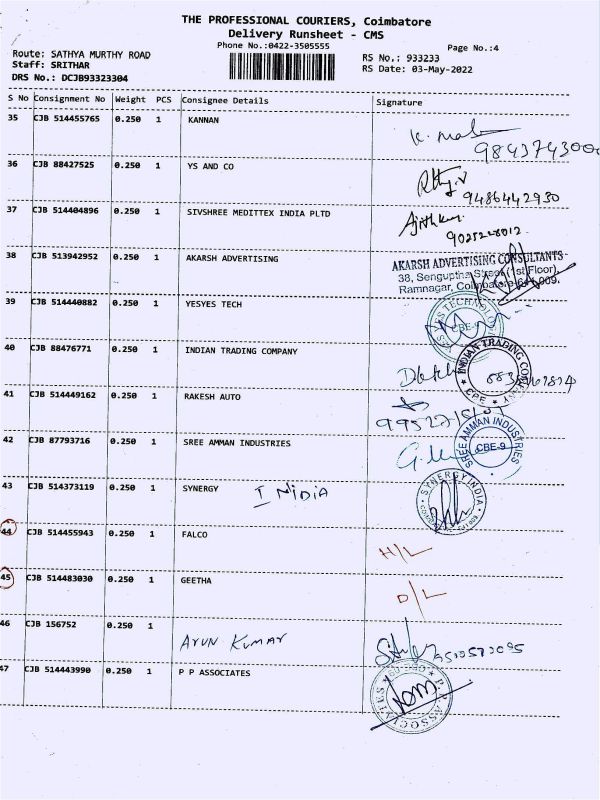 THE PROFESSIONAL COURIERS, Coimbatore
Delivery Runsheet - CMS
Phone No.:0422-3505555
Page No.:4
Route: SATHYA MURTHY ROAD
Staff: SRITHAR
DRS No.: DCJB93323304
RS No.: 933233
RS Date: 03-May-2022
S No Consignment No Weight PCS Consignee Details Signature
35 CJB 514455765 0.250 1 KANNAN
984374300
36 CJB 88427525 0.250 1 YS AND CO
9486442930
37 CJB 514404896 0.250 1 SIVSHREE MEDITTEX INDIA PLTD
9025228012
38 CJB 513942952 0.250 1 AKARSH ADVERTISING
AKARSH ADVERTISING CONSULTANTS
38, Senguptha Street (1st Floor),
Ramnagar, Coimbatore-641 009.
39 CJB 514440882 0.250 1 YESYES TECH
CBE-9
40 CJB 88476771 0.250 1 INDIAN TRADING COMPANY
INDIAN TRADING
41 CJB 514449162 0.250 1 RAKESH AUTO
42 CJB 87793716 0.250 1 SREE AMMAN INDUSTRIES
SREE AMMAN INDUSTRIES
CBE-9
43 CJB 514373119 0.250 1 SYNERGY INDIA
SYNERGY INDIA
44 CJB 514455943 0.250 1 FALCO
H/L
45 CJB 514483030 0.250 1 GEETHA
D/L
46 CJB 156752 0.250 1
Arun Kumar
47 CJB 514443990 0.250 1 P P ASSOCIATES
P.P. ASSOCIATES